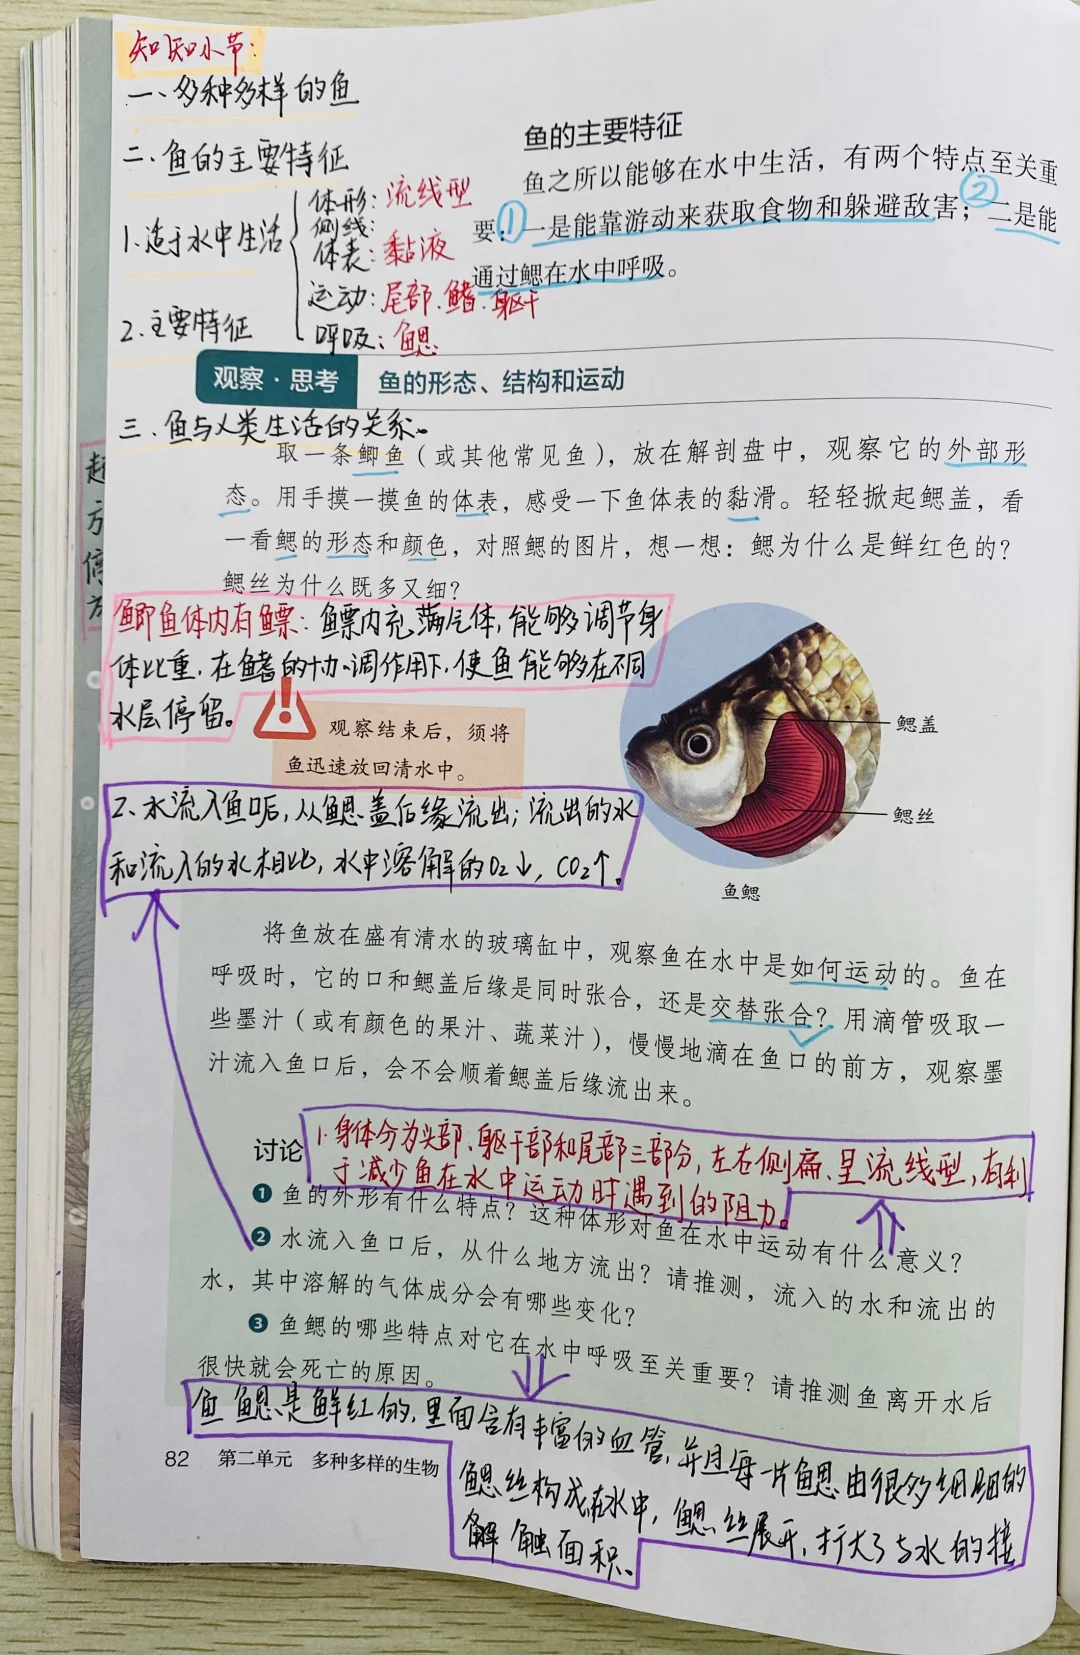 知识小节:
一、多种多样的鱼
二、鱼的主要特征
1.适于水中生活
体形:流线型
侧线:
体表:黏液
运动:尾部、鳍、躯干
呼吸:鳃
2.主要特征
三、鱼与人类生活的关系。
鱼的主要特征
鱼之所以能够在水中生活，有两个特点至关重
要：①一是能靠游动来获取食物和躲避敌害；②二是能
通过鳃在水中呼吸。
观察·思考 鱼的形态、结构和运动
取一条鲫鱼（或其他常见鱼），放在解剖盘中，观察它的外部形
态。用手摸一摸鱼的体表，感受一下鱼体表的黏滑。轻轻掀起鳃盖，看
一看鳃的形态和颜色，对照鳃的图片，想一想：鳃为什么是鲜红色的？
鳃丝为什么既多又细？
鲫鱼体内有鳔:鱼鳔内充满气体,能够调节身
体比重,在鳍的协调作用下,使鱼能够在不同
水层停留。
观察结束后，须将
鱼迅速放回清水中。
鳃盖
鳃丝
鱼鳃
2、水流入鱼口后,从鳃盖后缘流出;流出的水
和流入的水相比,水中溶解的O₂↓,CO₂↑。
将鱼放在盛有清水的玻璃缸中，观察鱼在水中是如何运动的。鱼在
呼吸时，它的口和鳃盖后缘是同时张合，还是交替张合？用滴管吸取一
些墨汁（或有颜色的果汁、蔬菜汁），慢慢地滴在鱼口的前方，观察墨
汁流入鱼口后，会不会顺着鳃盖后缘流出来。
讨论
1.身体分为头部、躯干部和尾部三部分,左右侧扁、呈流线型,有利
于减少鱼在水中运动时遇到的阻力。
❶ 鱼的外形有什么特点？这种体形对鱼在水中运动有什么意义？
❷ 水流入鱼口后，从什么地方流出？请推测，流入的水和流出的
水，其中溶解的气体成分会有哪些变化？
❸ 鱼鳃的哪些特点对它在水中呼吸至关重要？请推测鱼离开水后
很快就会死亡的原因。
鱼鳃是鲜红的,里面含有丰富的血管,并且每一片鱼鳃由很多细细的
鳃丝构成在水中,鳃丝展开,扩大了与水的接
触面积。
82 第二单元 多种多样的生物